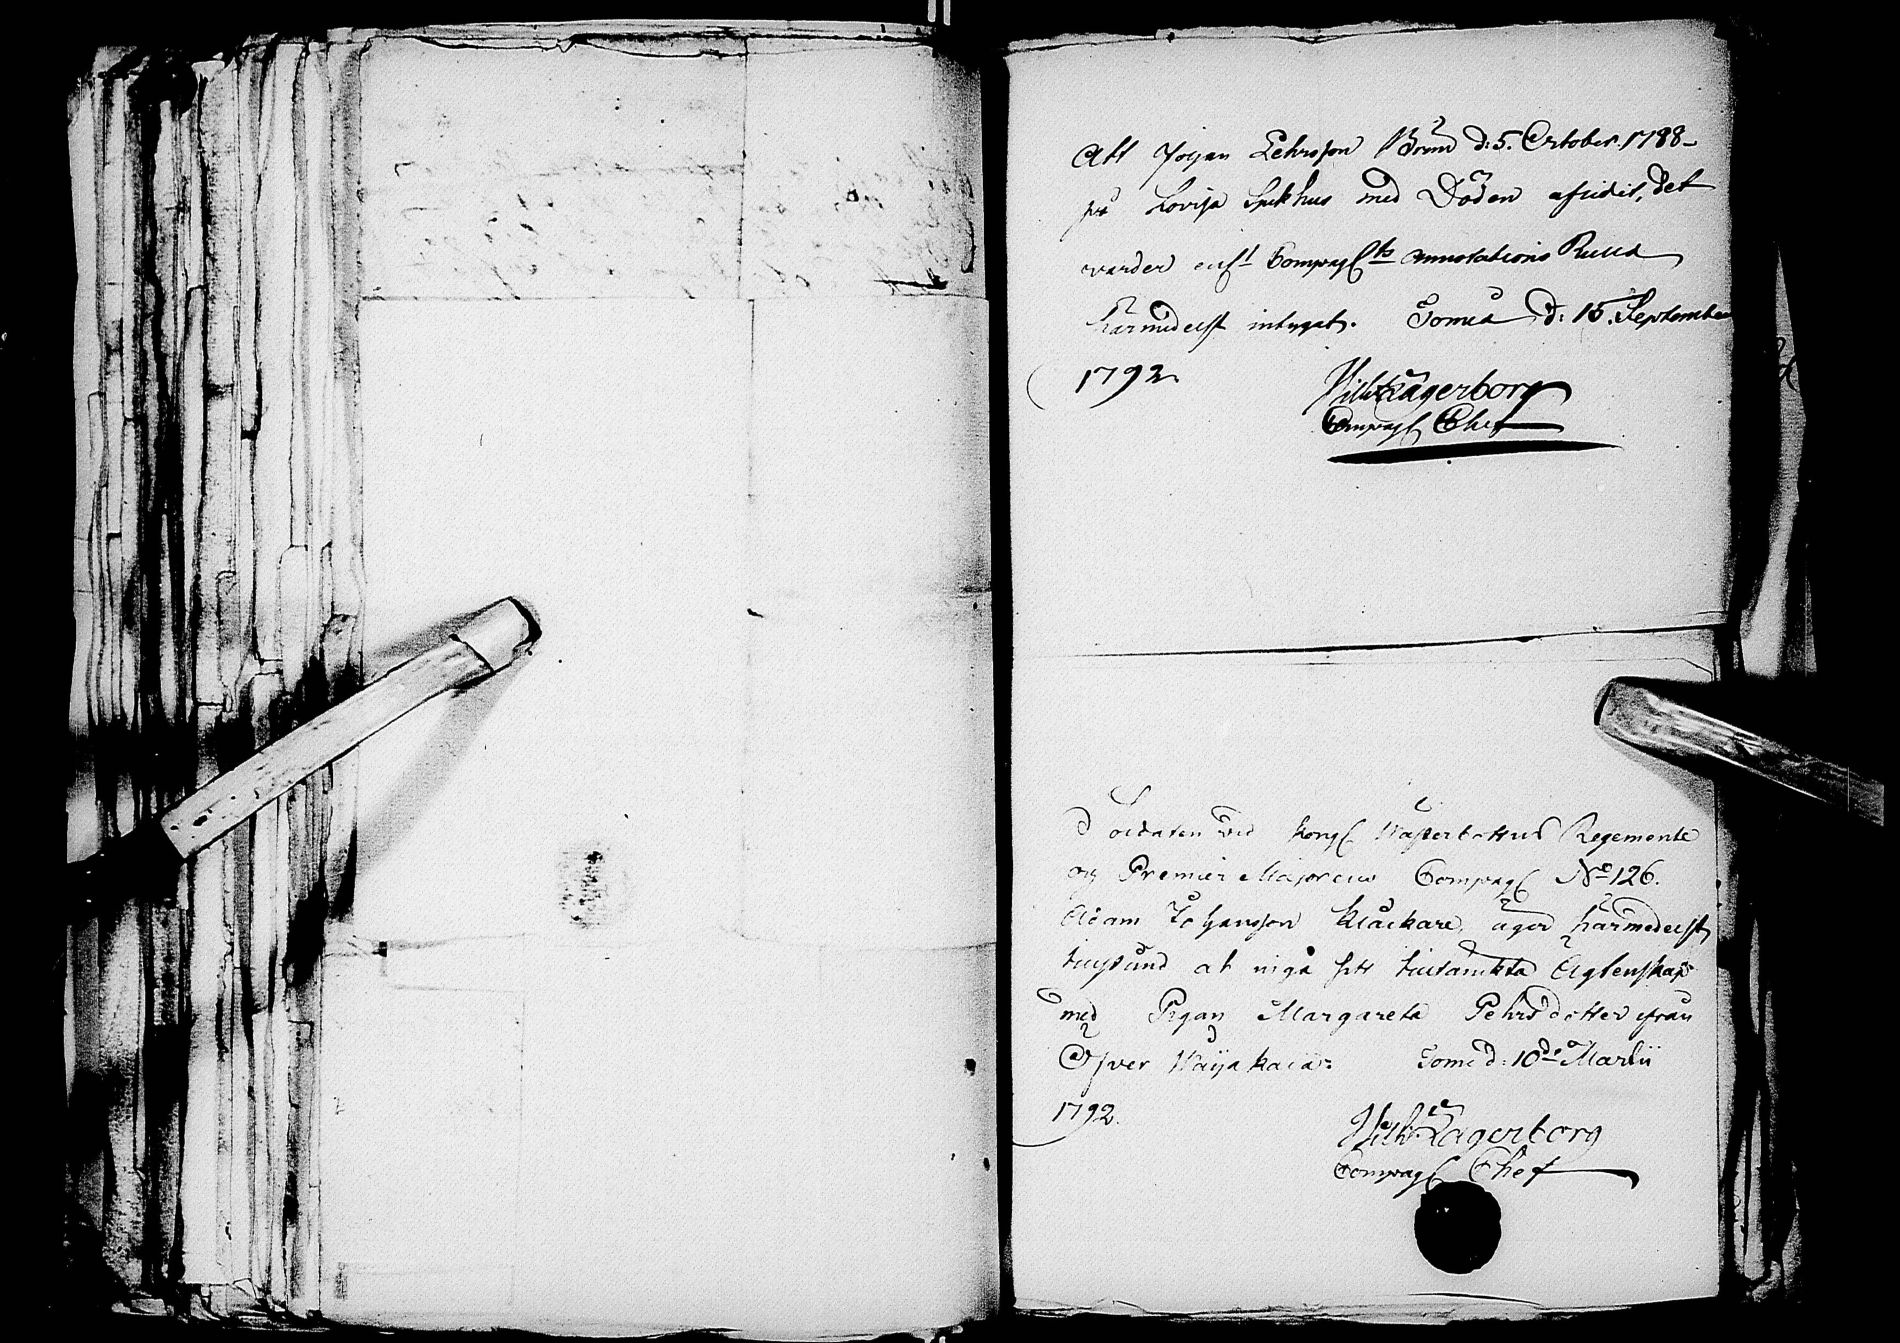 Att Johan Pehrsson Brun d: 5. October. 1788 -
på Lovisa Siukhus med Döden afledit, det
varder enl:t Compag:ts Annotations Rulla
härmedelst intygat. Torneå d: 15. September
1792.
Wilh Lagerborg
Compag Chef
Soldaten vid Kongl Wästerbottns Regemente
og Premier Majorens Compag No 126.
Adam Johansson Klåckare, äger härmedelst
tillstånd at ingå sitt tilltänckta Ägtenskap
med Pigan Margareta Pehrsdotter ifrån
Öfver Wojakala. Torne d: 10de Martii
1792.
Wilh Lagerborg
Compag Chef